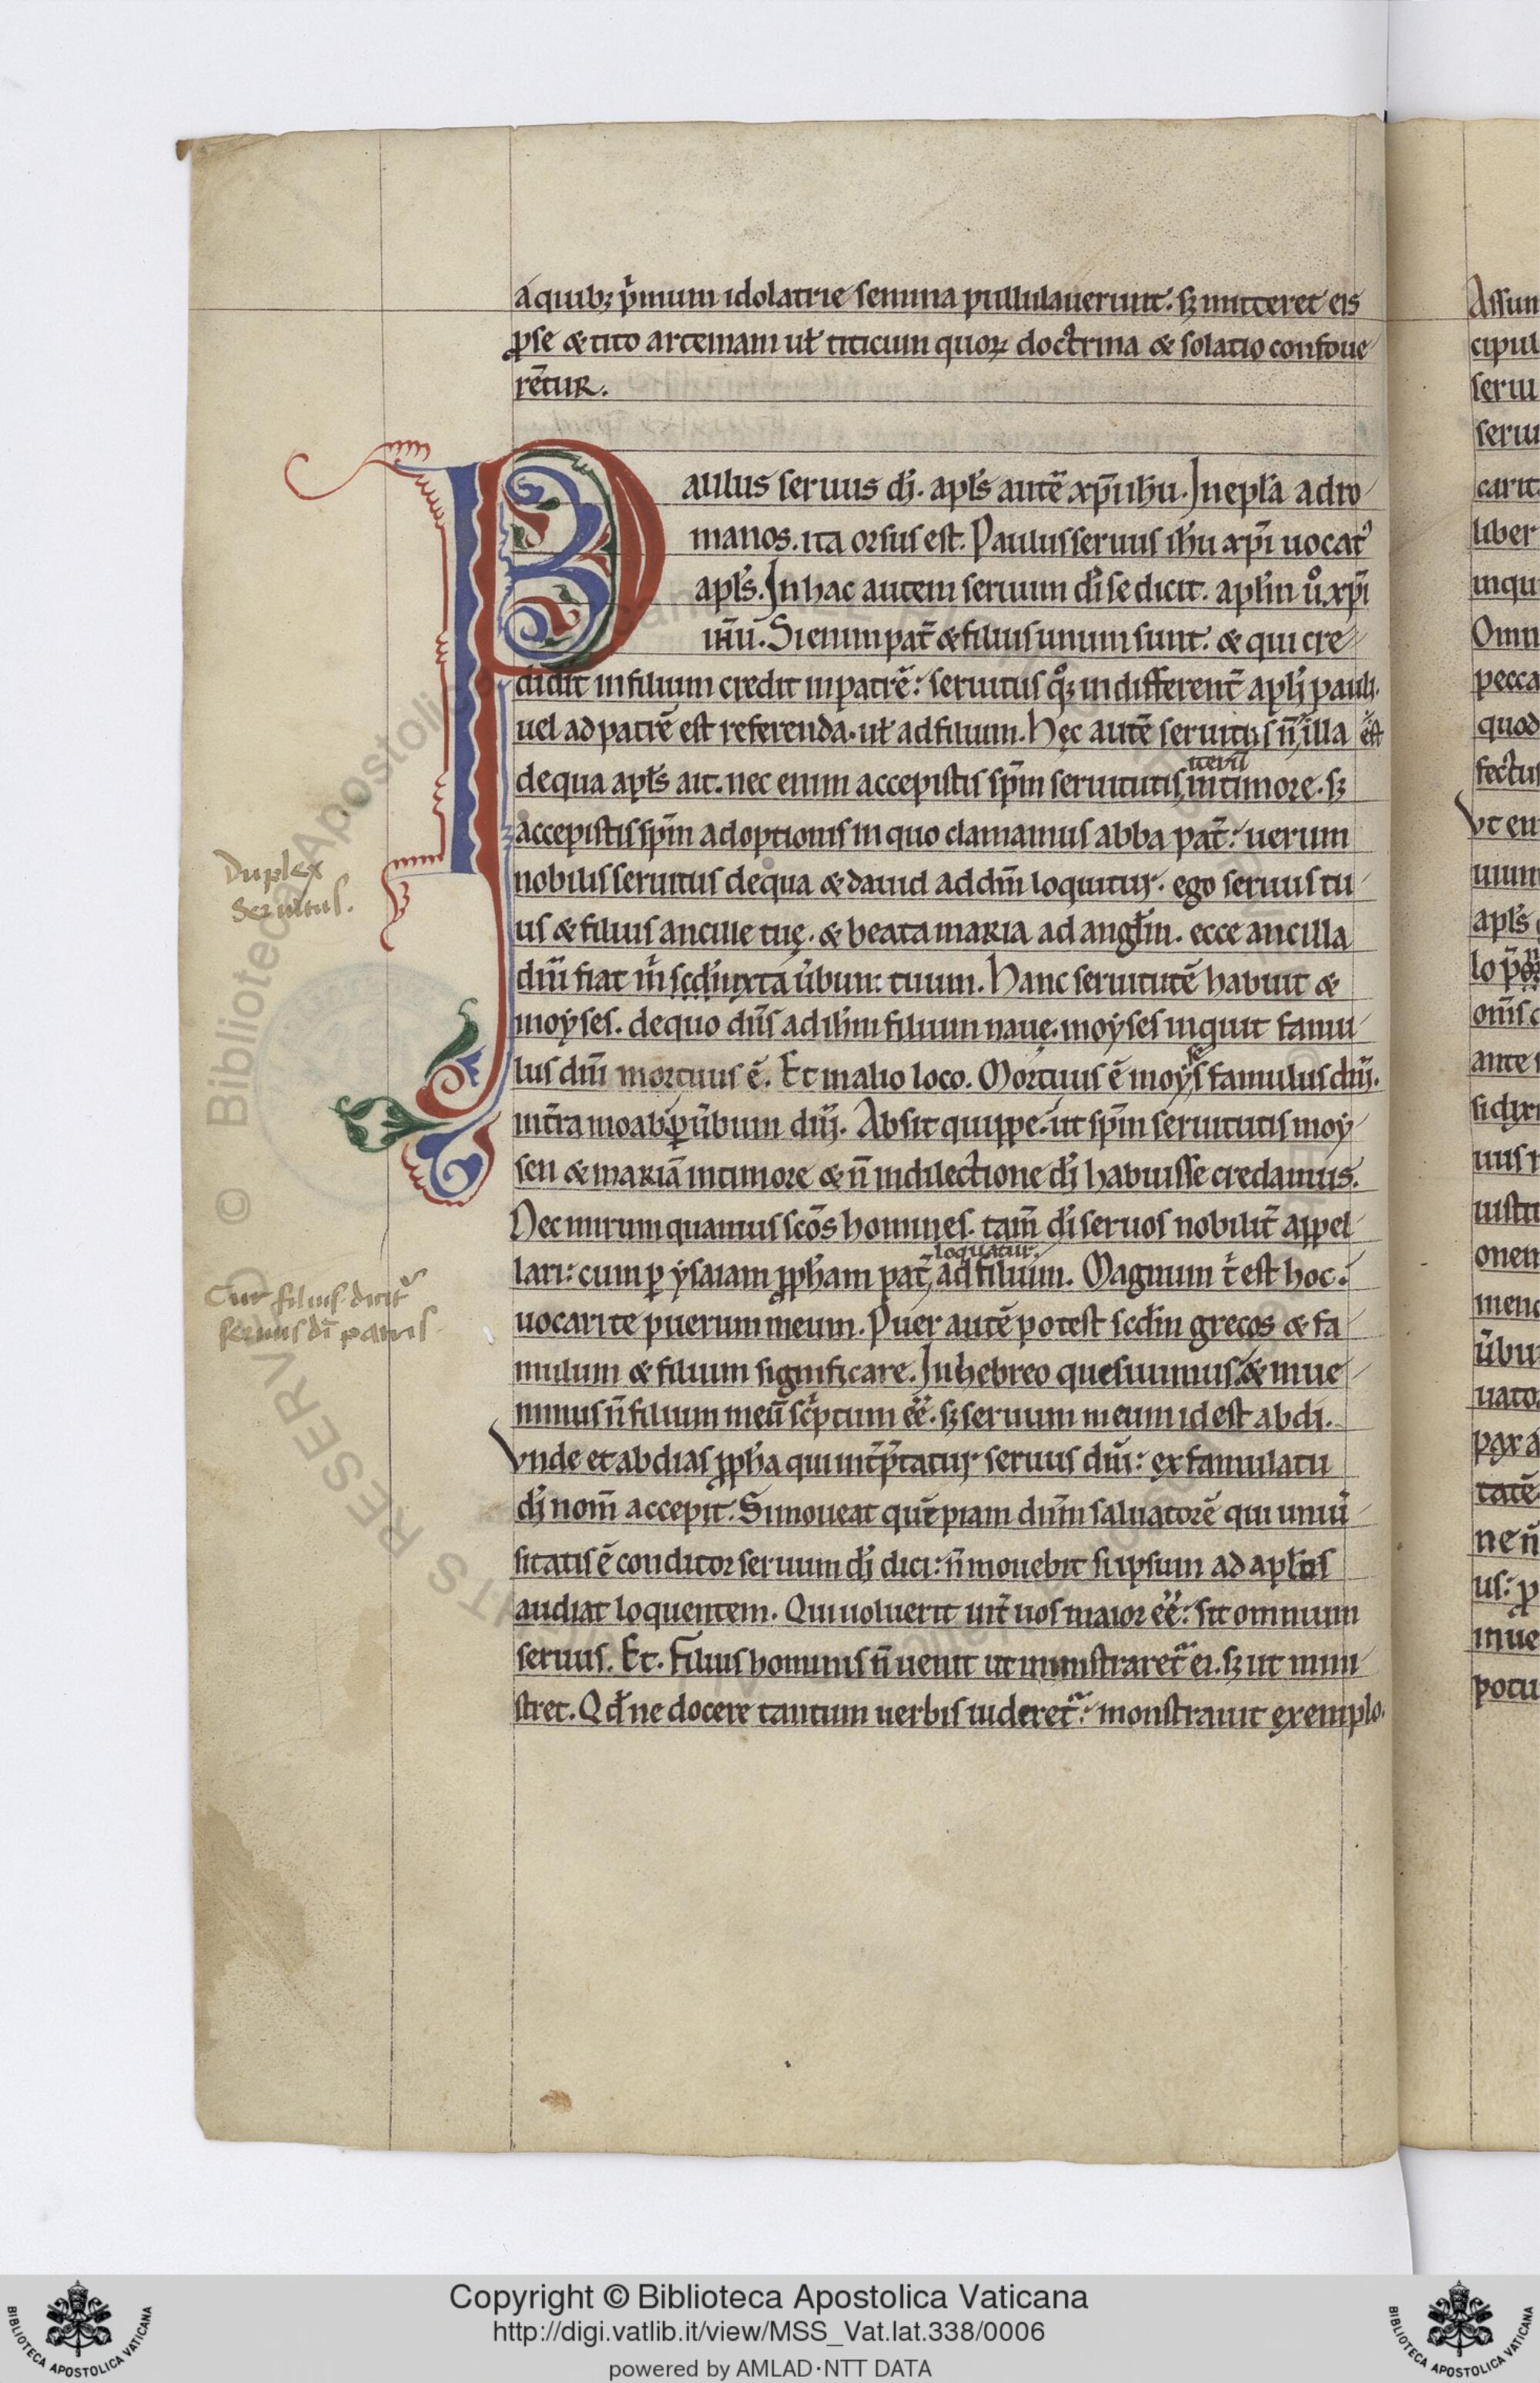 a quib; p̾mum idolatrie semina pullulauerunt. sꝫ mitteret eis
ꝓ se & tito artemam uł titicum quoꝝ doctrina & solatio confoue
rētur.
Paulus seruus dī. apłs autē xp̄i ihu. In epła ad ro
manos. ita orsus est. Paulus seruus ihu xp̄i uocat᾿
apłs. In hac autem seruum dī se dicit. apłm u̾o xp̄i
ihū. Si enim pat̄ & filius unum sunt. & qui cre
didit in filium credit in patrē: seruitus qͦꝫ indifferent̄ apłi pauli.
uel ad patrē est referenda. uł ad filium. Hęc autē seruitus n̄ illa est
de qua apłs ait. nec enim accepistis spm̄ seruitutis iterū in timore. sꝫ
accepistis spm̄ adoptionis in quo clamamus abba pat̄: uerum
nobilis seruitus de qua & dauid ad dm̄ loquitur. ego seruus tu
us & filius ancille tuę. & beata maria ad angłm. ecce ancilla
dnī fiat m̾ scdm̄ iuxta ūbum tuum. Hanc seruitutē habuit &
moyses. de quo dn̄s ad ihm filium nauę. moyses inquit famu
lus dnī mortuus ē. Et in alio loco. Mortuus ē moyses famulus dnī.
in t̄ra moab ꝑ ūbum dnī. Absit quippe. ut spm̄ seruitutis moy
sen & mariā in timore & n̄ in dilectione dī habuisse credamus.
Nec mirum quamuis scōs homines. tam̄ dī seruos nobilit̄ appel
lari: cum ꝑ ysaiam ꝓpham pat̄ ad filium loquatur. Magnum t̾ est hoc.
uocari te puerum meum. Puer autē potest scdm̄ grecos & fa
mulum & filium significare. In hebreo quesiuimus. & inue
nimus n̄ filium meū sc̾ptum eē. sꝫ seruum meum id est abdi.
Vnde et abdias ꝓpha qui int̄p̄tatur seruus dnī: ex famulatu
dī nom̄ accepit. Si moueat quēpiam dnm̄ saluatorē qui uniū
sitatis ē conditor seruum dī dici: n̄ mouebit si ipsum ad apłos
audiat loquentem. Qui uoluerit int̄ uos maior eē: sit omnium
seruus. Et. Filius hominis n̄ uenit ut ministraret᾿ ei. sꝫ ut mini
stret. Qđ ne docere tantum uerbis uideret᾿: monstrauit exemplo.
Duplex
seruitus.
Cur filius dicit᾿
seruus dī patris
Assum
cipul
seru
seru
carit
liber
inqu
Omn
pecca
quod
fectus
Vt en
uum
apłs
ante
si dixe
uus n
iusti
onem
ūbu
uato
pax a
tatē
ne n̄
inue
potu
Copyright © Biblioteca Apostolica Vaticana
http://digi.vatlib.it/view/MSS_Vat.lat.338/0006
powered by AMLAD·NTT DATA
BIBLIOTECA APOSTOLICA VATICANA
BIBLIOTECA APOSTOLICA VATICANA